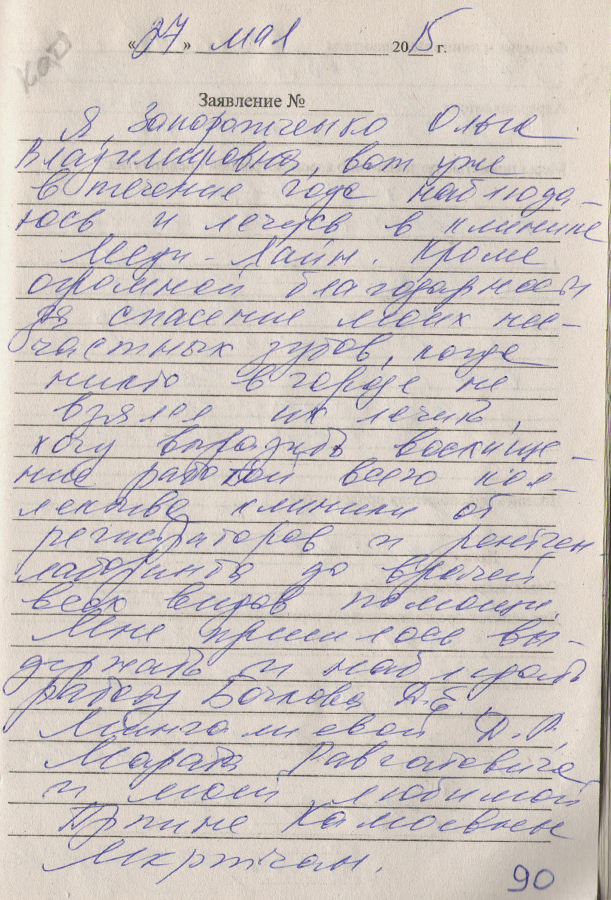 «27» мая 2015 г.
Заявление №
Я, Запорожченко Ольга
Владимировна, вот уже
в течение года наблюда-
юсь и лечусь в клинике
Меди-Лайн. Кроме
огромной благодарности
за спасение моих нес-
частных зубов, когда
никто в городе не
взялся их лечить,
хочу выразить восхище-
ние работой всего кол-
лектива клиники от
регистраторов и рентген
лаборанта до врачей
всех видов помощи.
Мне пришлось вы-
держать и наблюдать
работу Бочкова Д.Е.,
Мингалиевой Д.Р.,
Марата Равгатовича
и моей любимой
Мкртчан.
90